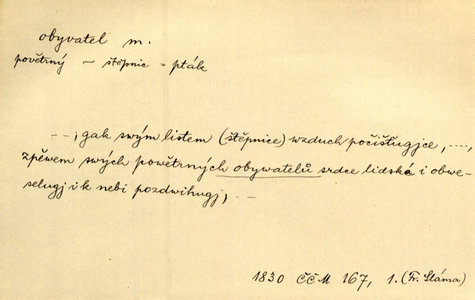 obywatel m.
povětrný ~ štěpnic = pták
– –, gak swým listem (štěpnice) wzduch počišťugjce, ...,
zpěwem swých powětrných obywatelů srdce lidské i obwe-
selugj i k nebi pozdwihugj, –
1830 ČČM 167, 1. (Fr. Sláma)